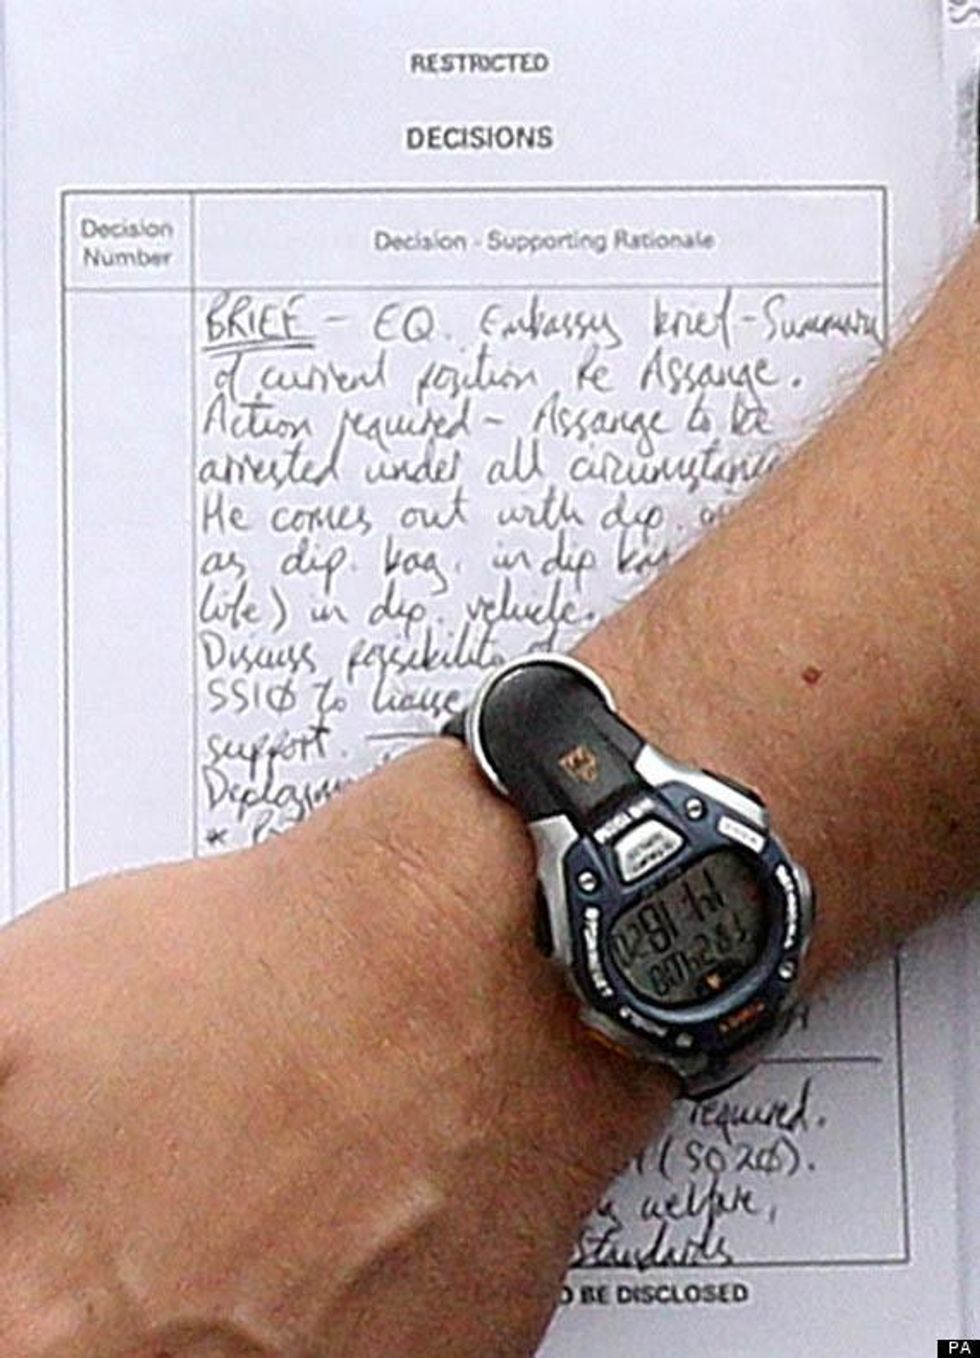 RESTRICTED
DECISIONS
Decision
Number
Decision - Supporting Rationale
BRIEF - EQ. Embassy brief - Summary
of current position re Assange.
Action required - Assange to be
arrested under all
He comes out with dip.
as dip. bag, in dip
in dip. vehicle.
Discuss possibility
SS1Ø to liaise
support.
required.
(SO 20).
welfare,
Standards
BE DISCLOSED
PA